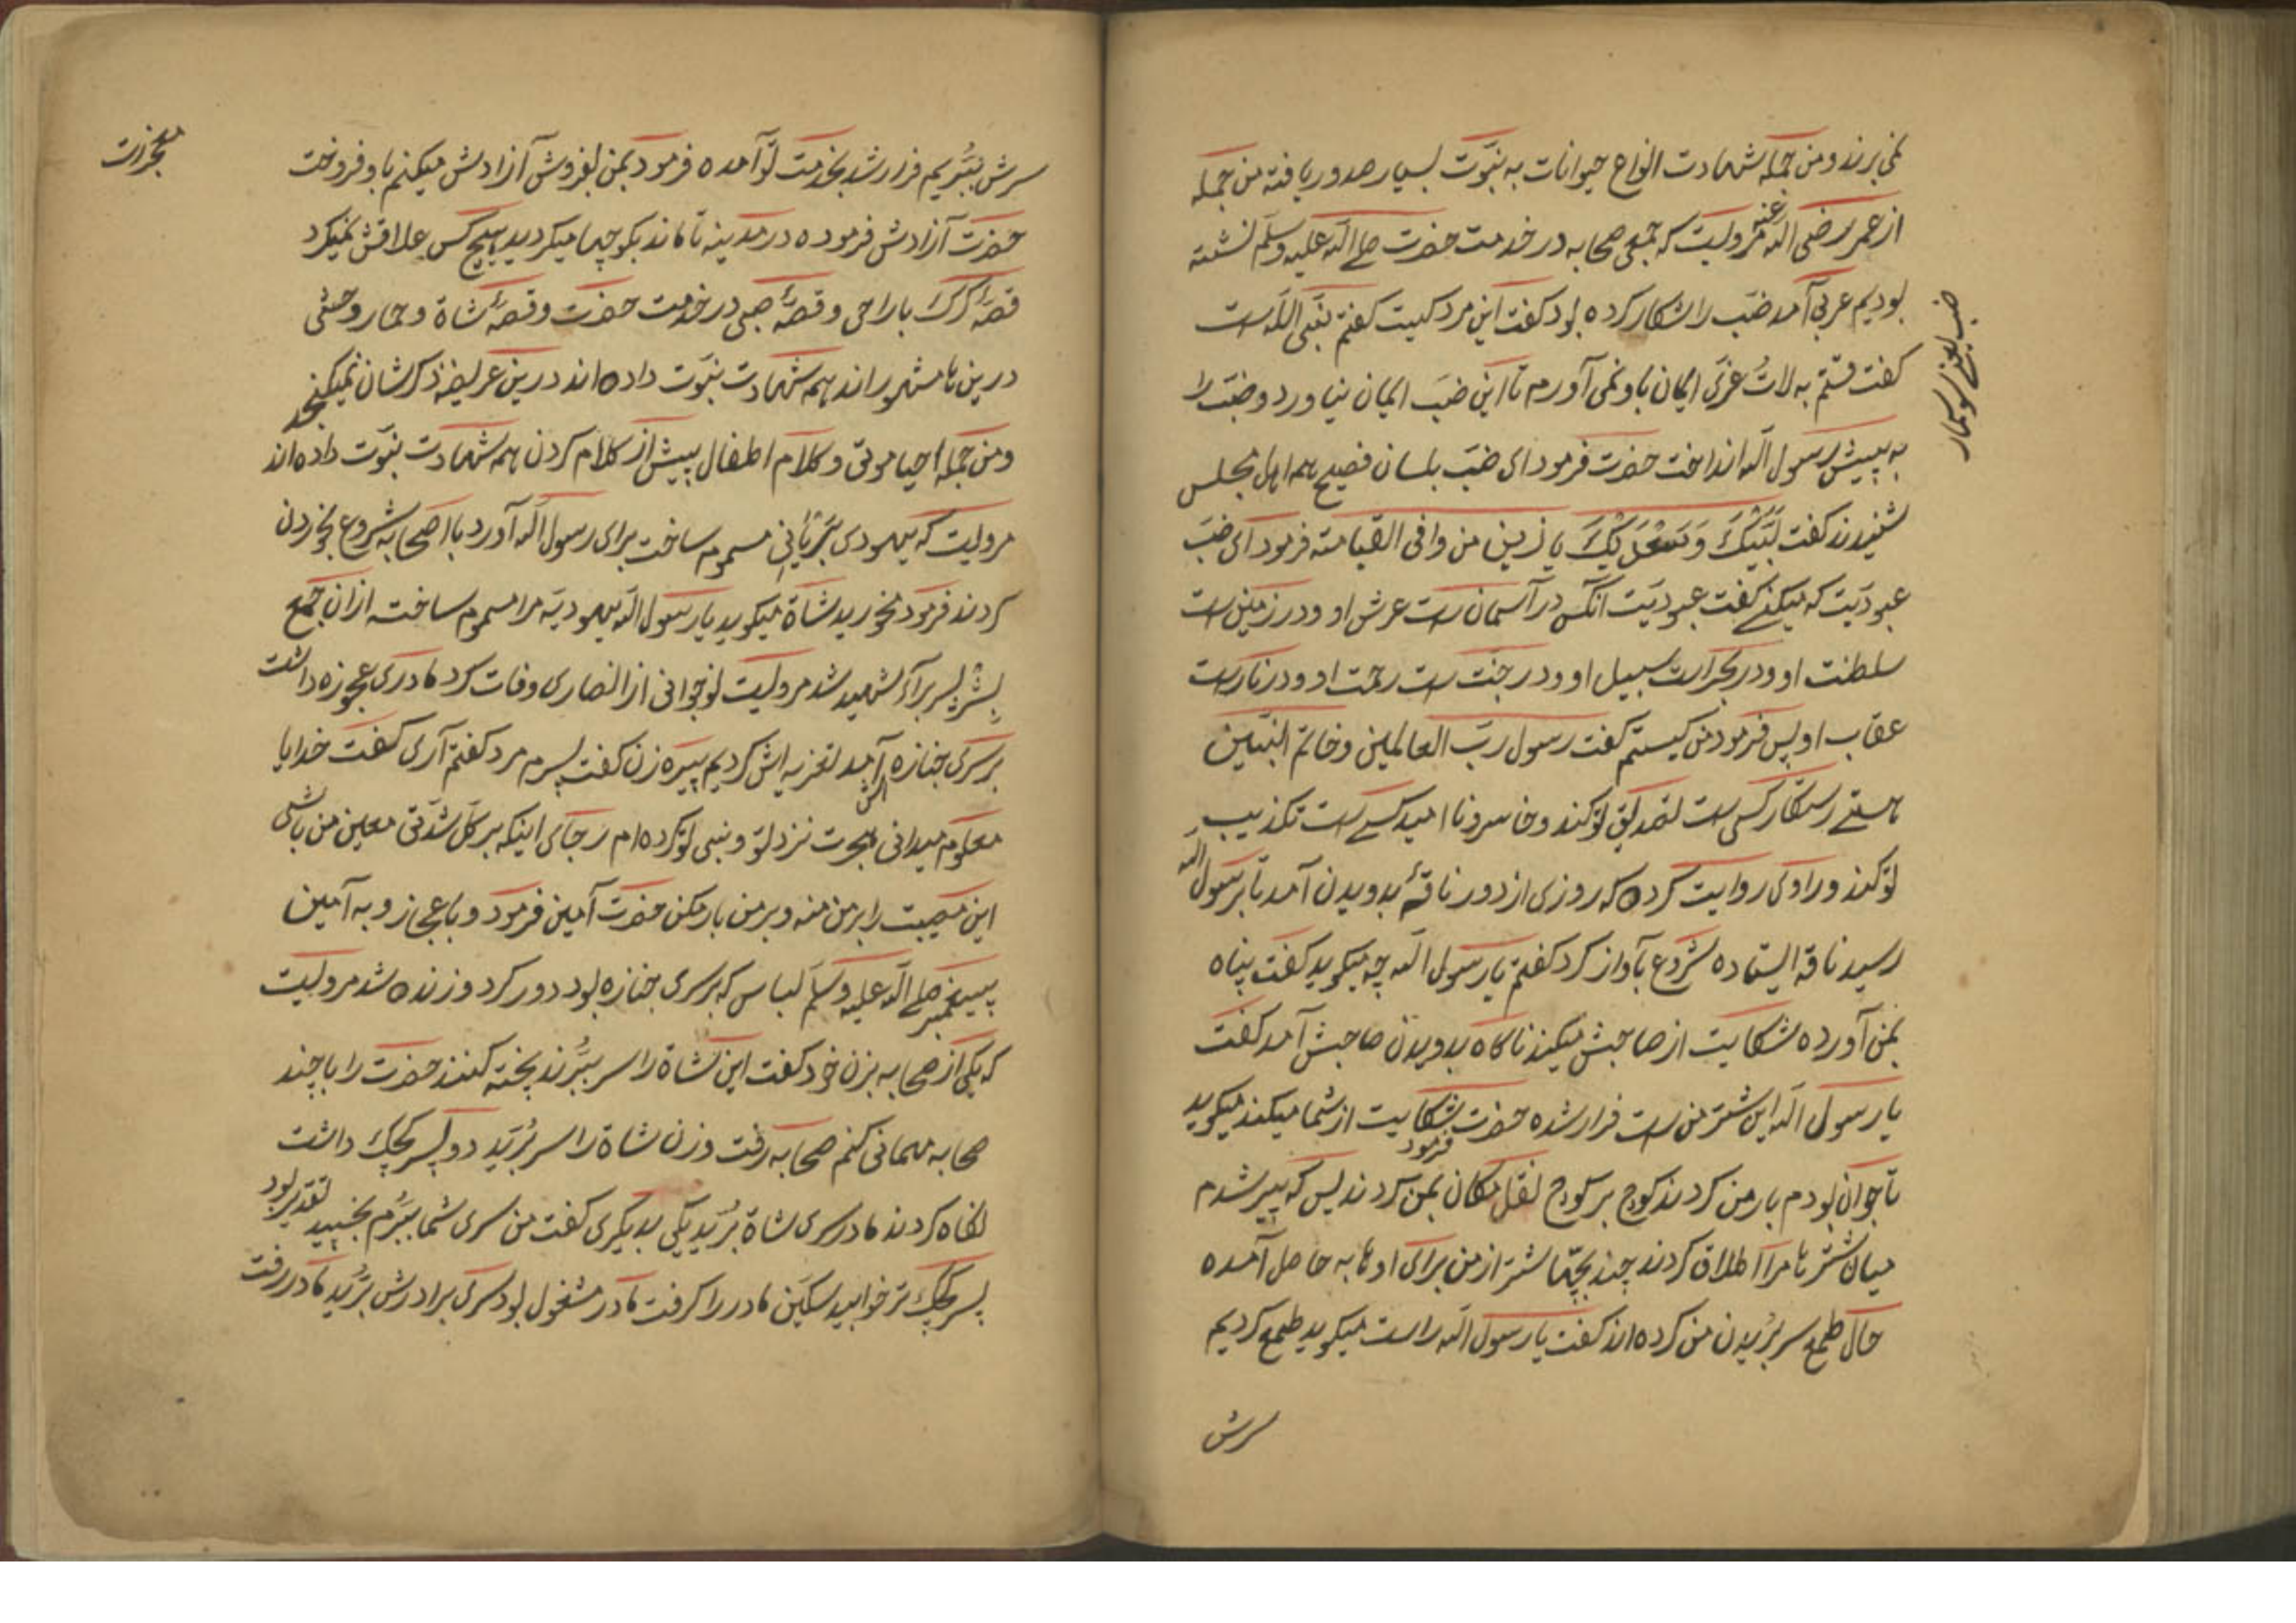 نمی برند و من جمله شهادت انواع حیوانات به نبوّت بسیار صدور یافته من جمله
از عمر رضی الله عنه مرویست که جمعی صحابه در خدمت حضرت صلے الله علیه وسلم نشسته
بودیم عربی آمد ضب را شکار کرده بود کفت این مرد کیست کفتم نبی الله است
کفت قسم به لات عزی ایمان باو نمی آورم تا این ضب ایمان نیاورد و ضب را
به پیش رسول الله انداخت حضرت فرمود ای ضب بلسان فصیح همه اهل مجلس
شنیدند کفت لَبَّیْکَ وَ سَعْدَیْکَ یا زین من وافی القیامته فرمود ای ضب
عبودیت که میکنے کفت عبودیت آنکس در آسمان است عرش او و در زمین است
سلطنت او و در بحر است سبیل او و در جنت است رحمت او و در نار است
عقاب او پس فرمود من کیستم کفت رسول رب العالمین و خاتم النبیین
هستے رستکار کسی است تصدیق تو کند و خاسر و نا امید کسے است تکذیب
تو کند و راوی روایت کرده که روزی از دور ناقهٔ بدویدن آمد تا برسول الله
رسید ناقه ایستاده شروع بآواز کرد کفتم یا رسول الله چه میکوید کفت پناه
بمن آورده شکایت از صاحبش میکند ناکاه بدویدن صاحبش آمد کفت
یا رسول الله این شتر من است فرار شده حضرت فرمود شکایت از شما میکند میکوید
تا جوان بودم بار من کردند کوچ بر کوچ نقل مکان بمن کردند پس که پیر شدم
میان شتر ها مرا اطلاق کردند چند بچّها شتر از من برای اوها به حاصل آمده
حال طمع سر بریدن من کرده اند کفت یا رسول الله راست میکوید طمع کردیم
سرش
ضب یعنے سوسمار
معجزات
سرش ببُریم فرار شد بخدمت تو آمده فرمود بمن بفروش آزادش میکنم باو فروخت
حضرت آزادش فرموده در مدینه تا ماند بکوچها میکردید هیچ کس علاقش نمیکرد
قصهٔ کرک با راعی و قصهٔ ضبی در خدمت حضرت و قصهٔ شاة و حمار وحشی
درین ها مشهور اند همه شهادت نبوت داده اند درین عریضه ذکرشان نمیکنجد
و من جمله احیا موتی و کلام اطفال پیش از کلام کردن همه شهادت نبوت داده اند
مرویست که یهودی بریانی مسموم ساخت برای رسول الله آورد با اصحابه شروع بخوردن
کردند فرمود مخورید شاة میکوید یا رسول الله یهودیه مرا مسموم ساخته ازان جمع
بشر پسر براء شهید شد مرویست نوجوانی از انصاری وفات کرد مادری عجوزه داشت
بر سری جنازه اش آمد تعزیه اش کردیم پیره زن کفت پسرم مرد کفتم آری کفت خدایا
معلوم میدانی هجرت نزد تو و نبی تو کرده ام رجای اینکه بر کل شدتی معین من باشی
این مصیبت را بر من منه و بر من بار مکن حضرت آمین فرمود و باعجاز و به آمین
پیغمبر صلے الله علیه وسلم لباس که بر سری جنازه بود دور کرد و زنده شد مرویست
که یکی از صحابه بزن خود کفت این شاة را سر ببُرند پخته کنند حضرت را با چند
صحابه مهمانی کنم صحابه رفت و زن شاة را سر بُرید دو پسر کوچک داشت
نکاه کردند مادر سری شاة بُرید یکی بدیکری کفت من سری شما ببُرم بخسپید تقدیر بود
پسر کوچک تر خوابید سکین مادر را کرفت مادر مشغول بود سری برادرش بُرید مادر رفت